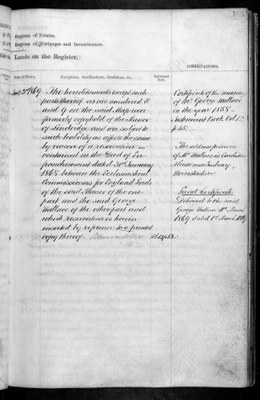 Register of Estates.
Register of Mortgages and Incumbrances.
Lands on the Register.
OBSERVATIONS.
Date of Entry.
Exceptions, Qualifications, Conditions, &c.
1869
The hereditaments except such
parts thereof as are numbered 8
and 9 on the said Map were
formerly copyhold of the Manor
of and are subject to
such liability as affects the same
by reason of a reservation
contained in the Deed of En-
franchisement dated 30th January
1865 between the Ecclesiastical
Commissioners for England Lords
of the said Manor of the one
part and the said George
Wallace of the other part and
which reservation is herein
inserted by reference to a printed
copy thereof
Certificate of the
of Mr George Wallace
in the year 1858.
Instrument Book Vol 1
p. 65.
The address
of Mr Wallace is
Worcestershire
Land Certificate
Delivered to the said
George Wallace
1869